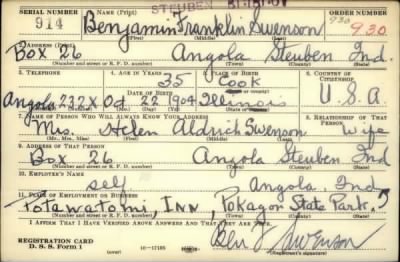 STEUBEN
SERIAL NUMBER
1. NAME (Print)
ORDER NUMBER
914
Benjamin Franklin Swenson
930
9.30
(First) (Middle) (Last)
2. ADDRESS (Print)
Box 26 Angola Steuben Ind.
(Number and street or R. F. D. number) (Town) (County) (State)
3. TELEPHONE
4. AGE IN YEARS
5. PLACE OF BIRTH
6. COUNTRY OF CITIZENSHIP
35
Cook
DATE OF BIRTH
Angola 232X Oct 22 1904 Illinois U.S.A
7. NAME OF PERSON WHO WILL ALWAYS KNOW YOUR ADDRESS
8. RELATIONSHIP OF THAT PERSON
Mrs. Helen Aldrich Swenson wife
9. ADDRESS OF THAT PERSON
Box 26 Angola Steuben Ind
(Number and street or R. F. D. number) (Town) (County) (State)
10. EMPLOYER'S NAME
self Angola, Ind.
11. PLACE OF EMPLOYMENT OR BUSINESS
Potawatomi, Inn, Pokagon State Park.
(Number and street or R. F. D. number) (Town) (County) (State)
I AFFIRM THAT I HAVE VERIFIED ABOVE ANSWERS AND THAT THEY ARE TRUE.
REGISTRATION CARD
D. S. S. Form 1
16-17105
Ben F Swenson
(Registrant's signature)